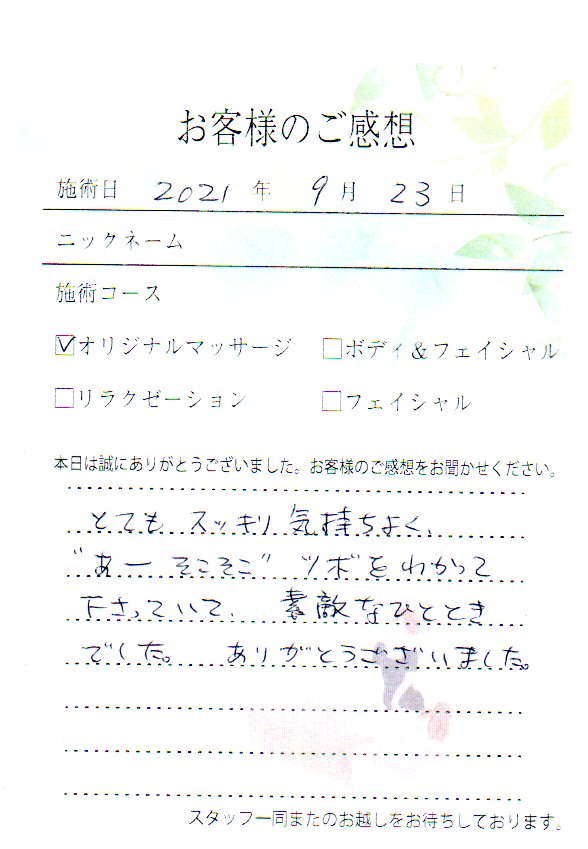 お客様のご感想
施術日 2021 年 9 月 23 日
ニックネーム
施術コース
☑オリジナルマッサージ □ボディ&フェイシャル
□リラクゼーション □フェイシャル
本日は誠にありがとうございました。お客様のご感想をお聞かせください。
とても スッキリ 気持ちよく、
"あー そこそこ" ツボをわかって
下さっていて、 素敵なひととき
でした。 ありがとうございました。
スタッフ一同またのお越しをお待ちしております。